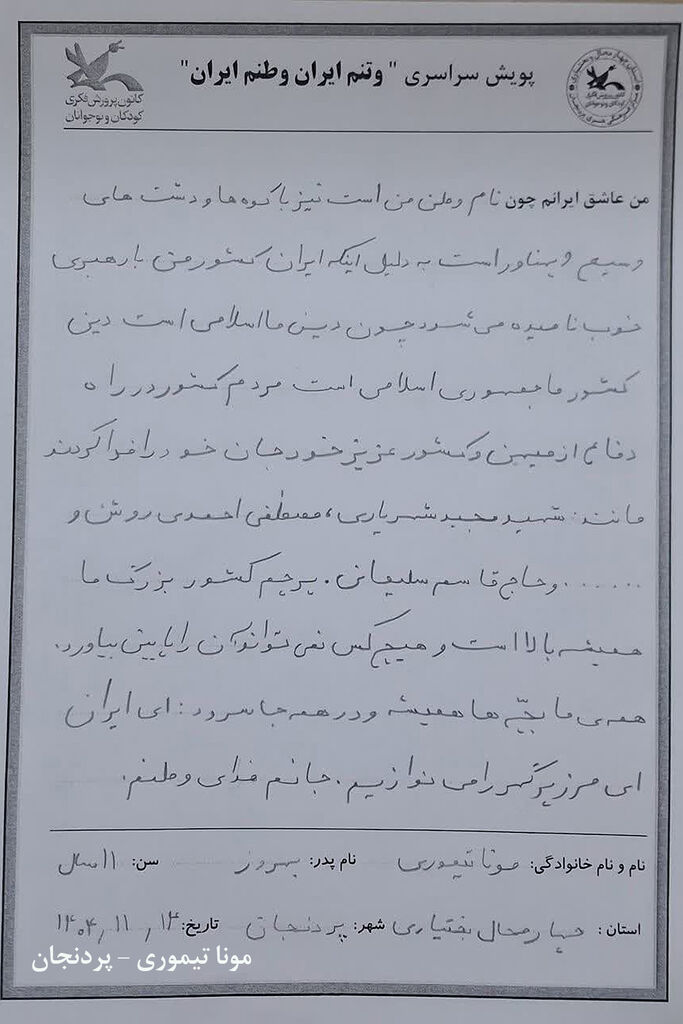 پویش سراسری "وتنم ایران وطنم ایران"
کانون پرورش فکری
کودکان و نوجوانان
کانون پرورش فکری
کودکان و نوجوانان
من عاشق ایرانم چون نام وطن من است نیز با کوه ها و دشت های
وسیع و پهناور است به دلیل اینکه ایران کشور من با رهبری
خوب نامیده می شود چون دین ما اسلامی است دین
کشور ما جمهوری اسلامی است مردم کشور در راه
دفاع از میهن و کشور عزیز خود جان خود را فدا کردند
مانند: شهید مجید شهریاری، مصطفی احمدی روشن و
...... و حاج قاسم سلیمانی. پرچم کشور بزرگ ما
همیشه بالا است و هیچ کس نمی تواند آن را پایین بیاورد.
همه ی ما بچّه ها همیشه و در همه جا سرود: ای ایران
ای مرز پرگهر را می نوازیم. جانم فدای وطنم.
نام و نام خانوادگی: مونا تیموری نام پدر: بهروز سن: ۱۱ سال
استان: چهارمحال بختیاری شهر: پردنجان تاریخ: ۱۴۰۴,۱۱,۱۴
مونا تیموری - پردنجان